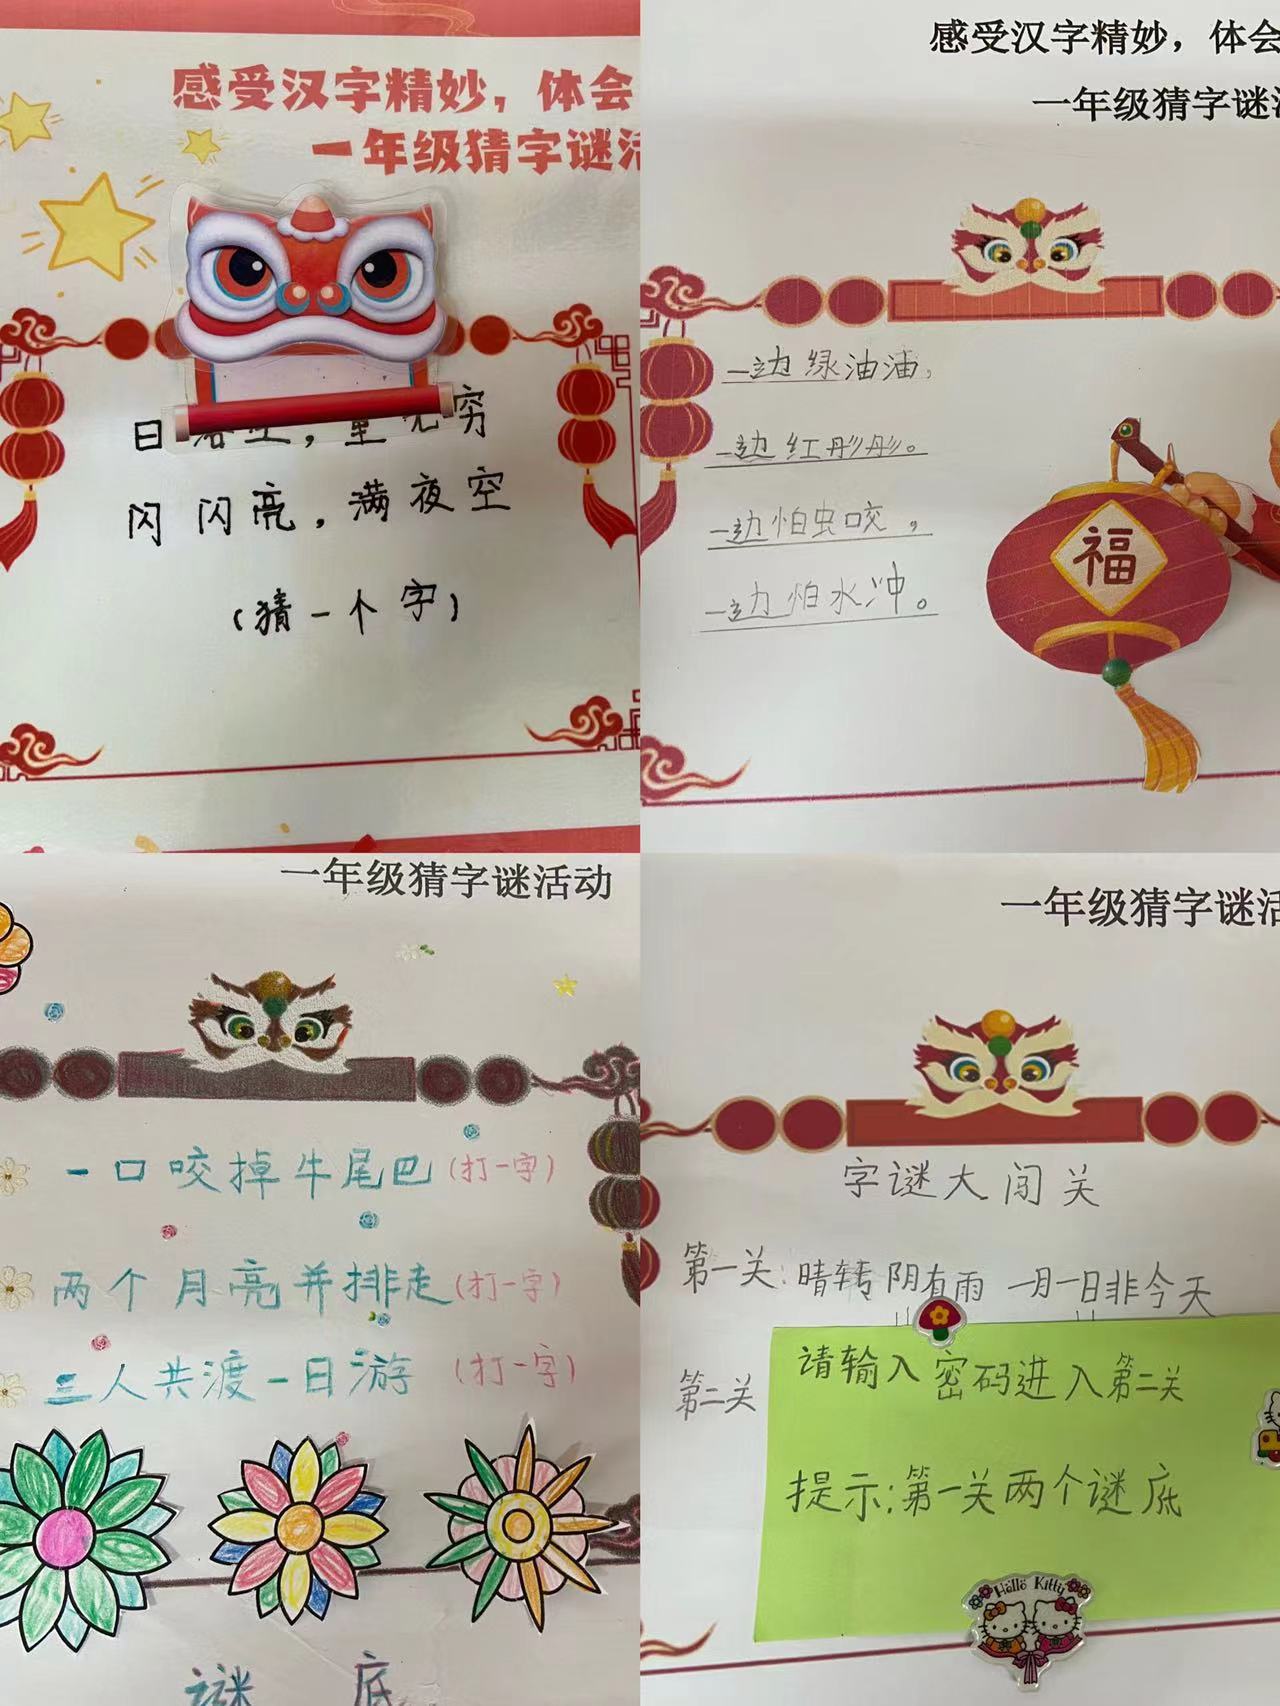 感受汉字精妙，体会
一年级猜字谜活
日落空，量无穷
闪闪亮，满夜空
（猜一个字）
感受汉字精妙，体会
一年级猜字谜活
一边绿油油，
一边红彤彤。
一边怕虫咬，
一边怕水冲。
福
一年级猜字谜活动
一口咬掉牛尾巴（打一字）
两个月亮并排走（打一字）
三人共渡一日游（打一字）
谜底
一年级猜字谜活
字谜大闯关
第一关：晴转阴有雨 一月一日非今天
第二关
请输入密码进入第二关
提示：第一关两个谜底
Hello Kitty